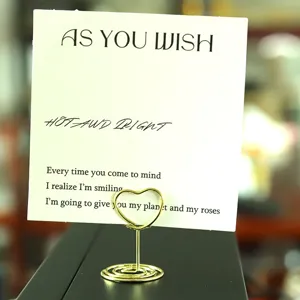 AS YOU WISH
HOT AWD BRIGHT
Every time you come to mind
I realize I'm smiling
I'm going to give you my planet and my roses